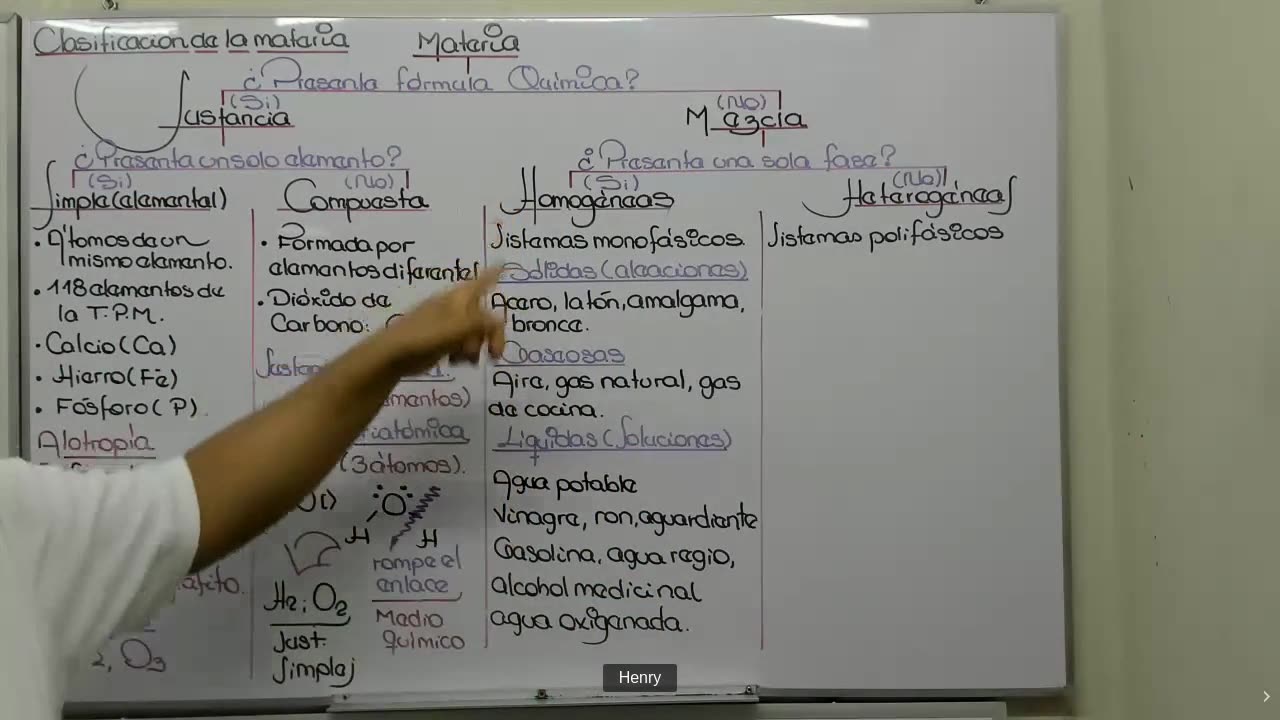 Clasificación de la materia
Materia
¿Presenta fórmula Química?
(Si)
(No)
Sustancia
Mezcla
¿Presenta un solo elemento?
¿Presenta una sola fase?
(Si)
(No)
(Si)
(No)
Simple (elemental)
• Átomos de un
mismo elemento.
• 118 elementos de
la T.P.M.
• Calcio (Ca)
• Hierro (Fe)
• Fósforo (P).
Alotropía
O3
Compuesta
• Formada por
elementos diferentes
• Dióxido de
Carbono:
(3 átomos).
O
H
H
rompe el
enlace
Medio
químico
H2; O2
Sust.
Simples
Homogéneas
Sistemas monofásicos.
Sólidas (aleaciones)
Acero, latón, amalgama,
bronce.
Gaseosas
Aire, gas natural, gas
de cocina.
Líquidas (Soluciones)
Agua potable
Vinagre, ron, aguardiente
Gasolina, agua regio,
alcohol medicinal
agua oxigenada.
Heterogéneas
Sistemas polifásicos
Henry